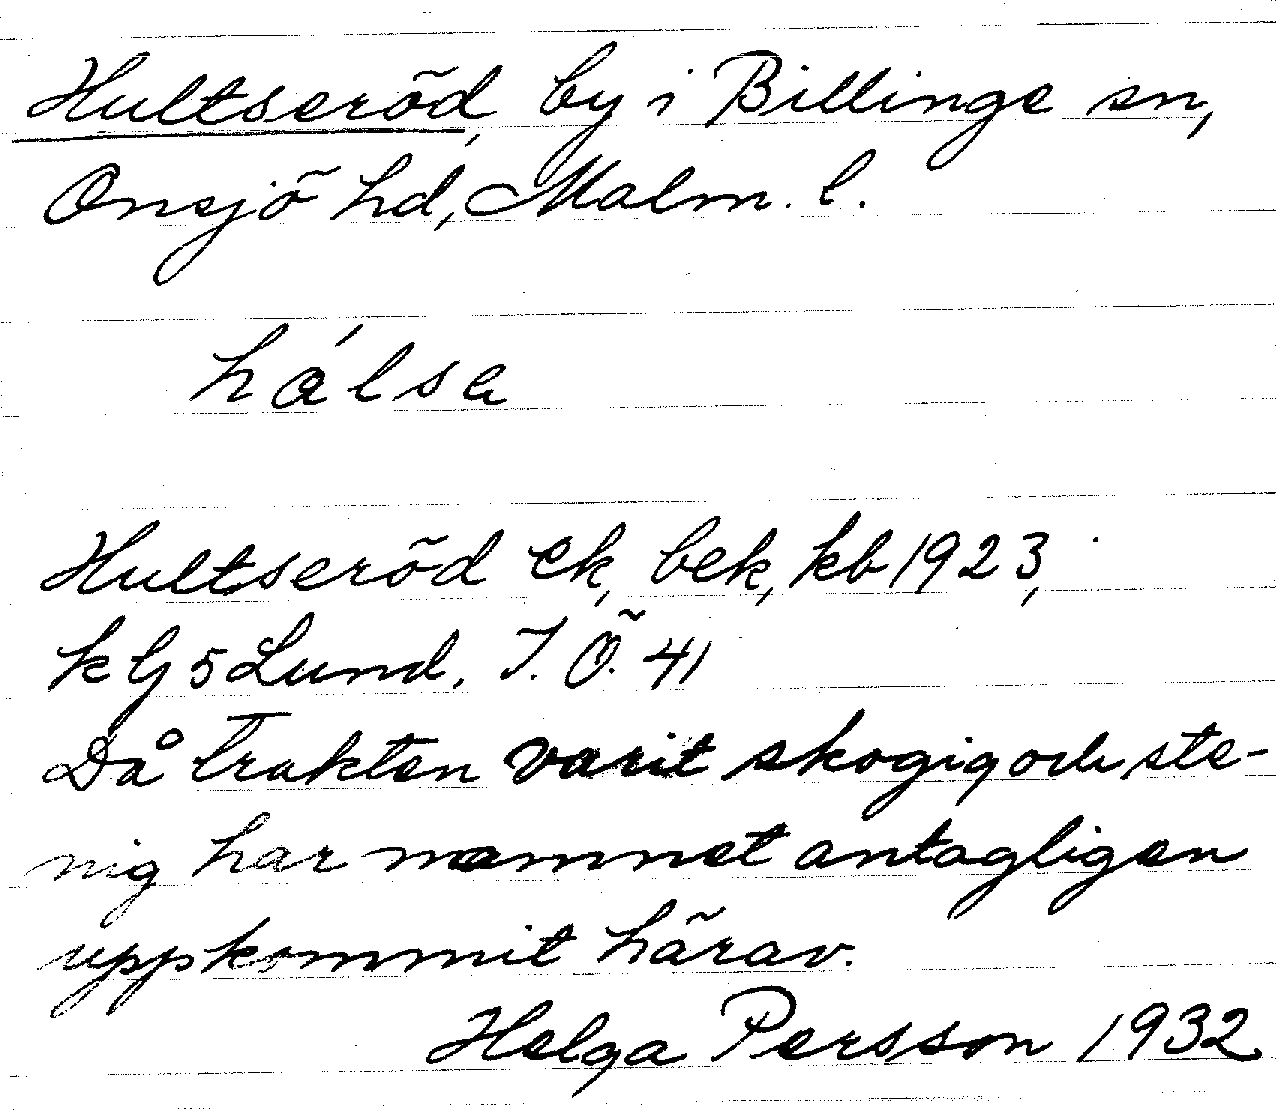 Hultseröd, by i Billinge sn,
Onsjö hd, Malm. l.
hálsa
Hultseröd ek, bek, kb 1923,
k G 5 Lund. J. Ö. 41
Då trakten varit skogig och ste-
nig har namnet antagligen
uppkommit härav.
Helga Persson 1932